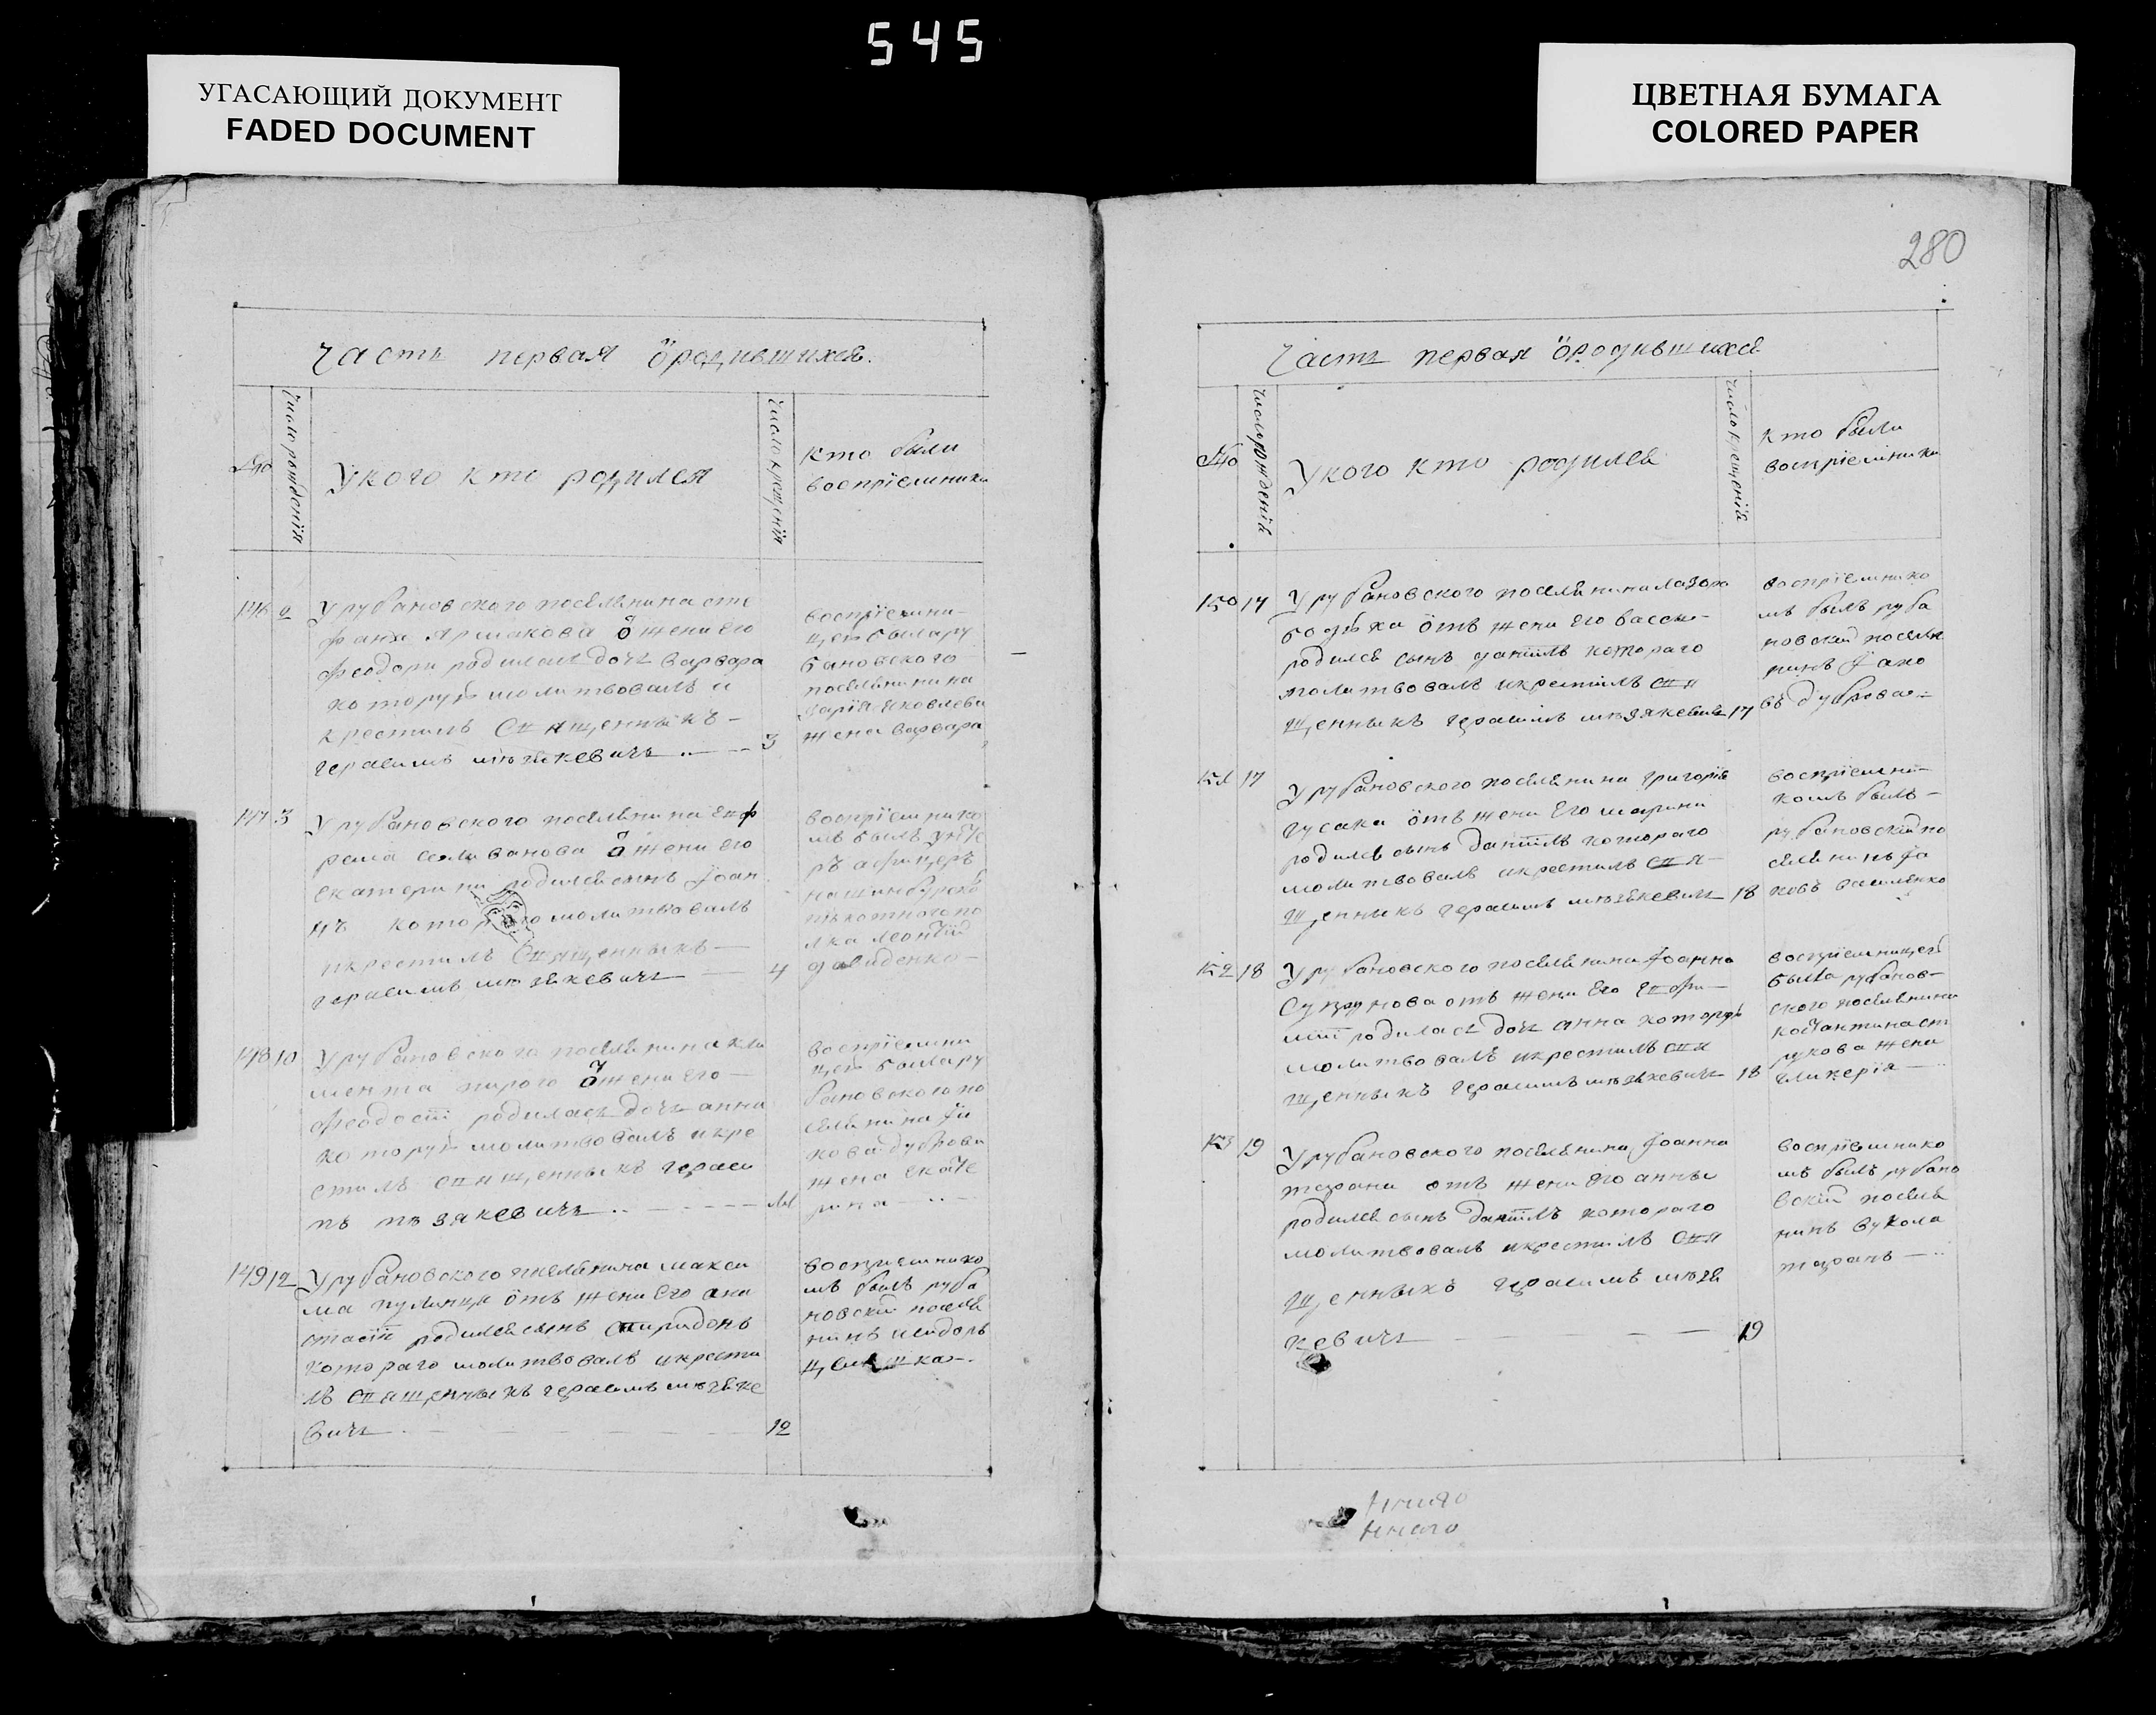 545
УГАСАЮЩИЙ ДОКУМЕНТ
FADED DOCUMENT
ЦВЕТНАЯ БУМАГА
COLORED PAPER
280
Часть первая ѿ родившихся.
число рождения
У кого кто родился
число крещенїя
кто были
воспрїемники
146
У рубановского поселянина сте
фана Ярмакова ѿ жени его
феодори родилась дочь варвара
которую молитвовалъ и
крестилъ священникъ
герасимъ мѣзякевичъ 3
воспрїемни
цею была ру
бановского
поселянина
жена варвара
147 3
У рубановского поселянина Евф
рема селиванова ѿ жени его
екатерини родился сынъ Іоан
нъ которого молитвовалъ
икрестилъ священникъ
герасимъ мѣзякевичъ 4
воспрїемнико
мъ былъ унте
ръ афицеръ
пѣхотного по
лка леонтїй
давиденко
148 10
У рубановского поселянина кли
мента ѿ жени его
феодосїи родилась дочь анна
которую молитвовалъ икре
стилъ священникъ гераси
мъ мѣзякевичъ
воспрїемни
цею была ру
бановского по
селянина Їа
кова дуброви
жена екате
рина
149 12
У рубановского поселянина макси
ма ѿтъ жени его ана
стасїи родился сынъ спиридонъ
котораго молитвовалъ икрести
лъ священникъ герасимъ мѣзяке
вичъ 12
воспрїемнико
мъ былъ руба
новскїй поселя
нинъ исидоръ
Часть первая ѿ родившихся
число рожденїя
У кого кто родился
число крещенїя
кто были
воспрїемники
150 17
У рубановского поселянина лазора
ѿтъ жени его васси
родился сынъ данїилъ котораго
молитвовалъ икрестилъ свя
щенникъ герасимъ мѣзякевичъ 17
воспрїемнико
мъ былъ руба
новскїй поселя
нинъ Їако
въ дуброва
151 17
У рубановского поселянина григорїя
гусака ѿтъ жени его марини
родился сынъ данїилъ котораго
молитвовалъ икрестилъ свя
щенникъ герасимъ мѣзякевичъ 18
воспрїемни
комъ былъ
рубановскїй по
селянинъ Їа
ковъ василенко
152 18
У рубановского поселянина Їоанна
отъ жени его Евфи
мїи родилась дочь анна которую
молитвовалъ икрестилъ свя
щенникъ герасимъ мѣзякевичъ 18
воспрїемницею
была рубанов
ского поселянина
костантина ст
рукова жена
гликерїя
153 19
У рубановского поселянина Їоанна
тарана отъ жени его анны
родился сынъ данїилъ котораго
молитвовалъ икрестилъ свя
щенникъ герасимъ мѣзя
кевичъ 19
воспрїемнико
мъ былъ рубано
вскїй поселя
нинъ вукола
таранъ